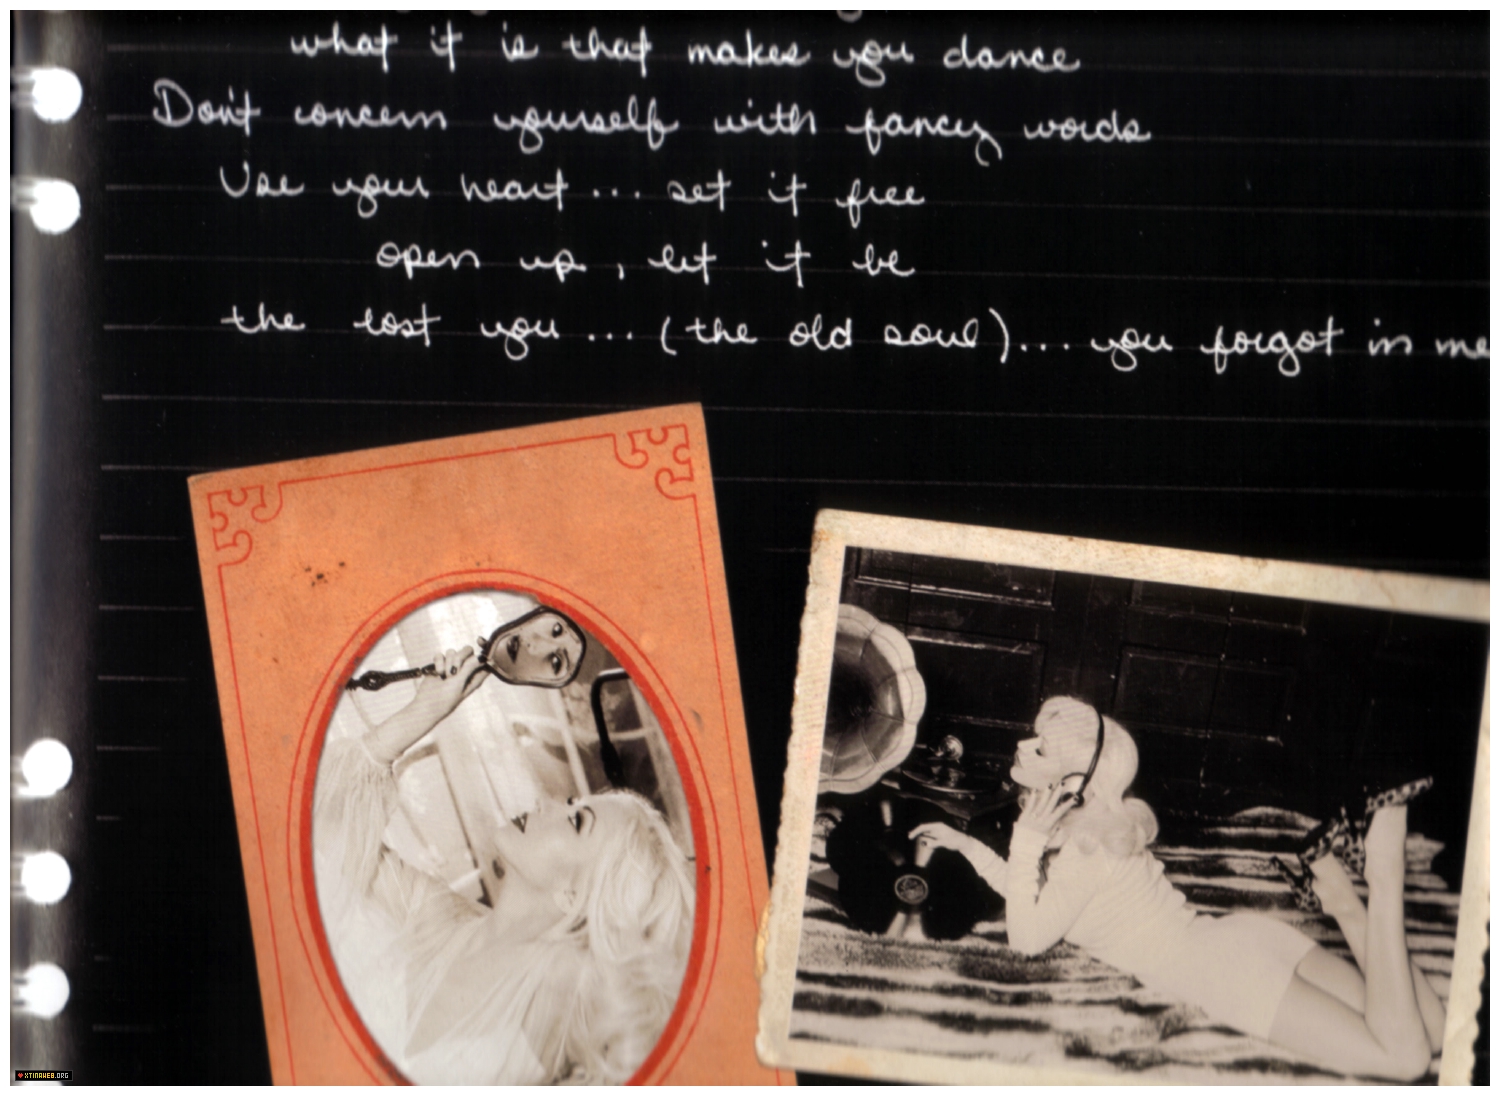 what it is that makes you dance
Don't concern yourself with fancy words
Use your heart... set it free
open up, let it be
the lost you... (the old soul)... you forgot in me
XTINAWEB.ORG